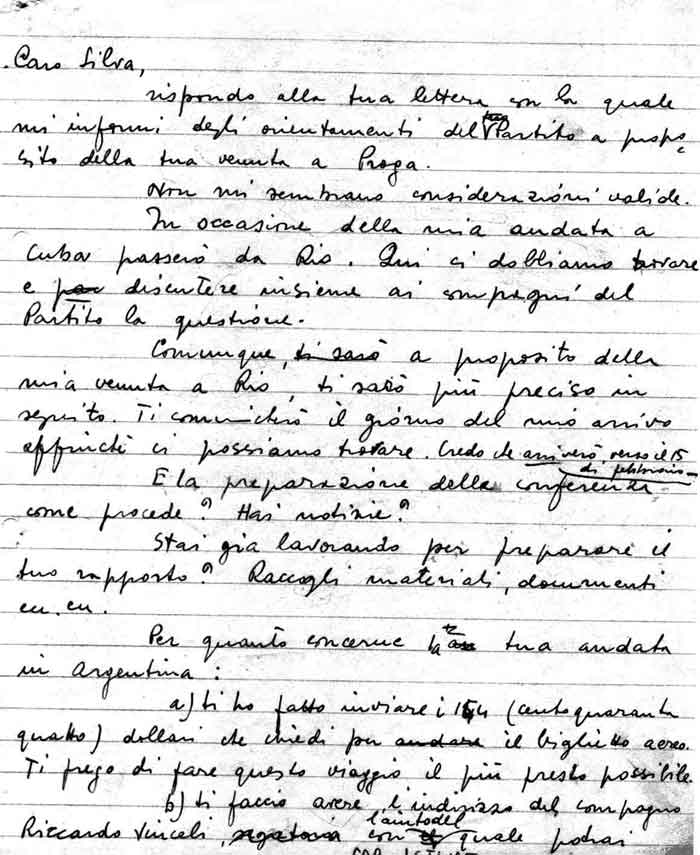 Caro Silva,
rispondo alla tua lettera con la quale
mi informi degli orientamenti del tuo Partito a propo
sito della tua venuta a Praga.
Non mi sembrano considerazioni valide.
In occasione della mia andata a
Cuba passerò da Rio. Qui ci dobbiamo trovare
e discutere insieme ai compagni del
Partito la questione.
Comunque, ti sarò a proposito della
mia venuta a Rio, ti sarò più preciso in
seguito. Ti comunicherò il giorno del mio arrivo
affinché ci possiamo trovare. Credo che arriverò verso il 15
di febbraio
E la preparazione della conferenza
come procede? Hai notizie?
Stai già lavorando per preparare il
tuo rapporto? Raccogli materiali, documenti
ecc. ecc.
Per quanto concerne la tua andata
in Argentina:
a) ti ho fatto inviare i 144 (centoquaranta
quatto) dollari che chiedi per andare il biglietto aereo.
Ti prego di fare questo viaggio il più presto possibile.
b) ti faccio avere l'indirizzo del compagno
l'aiuto del
Riccardo con quale potrai